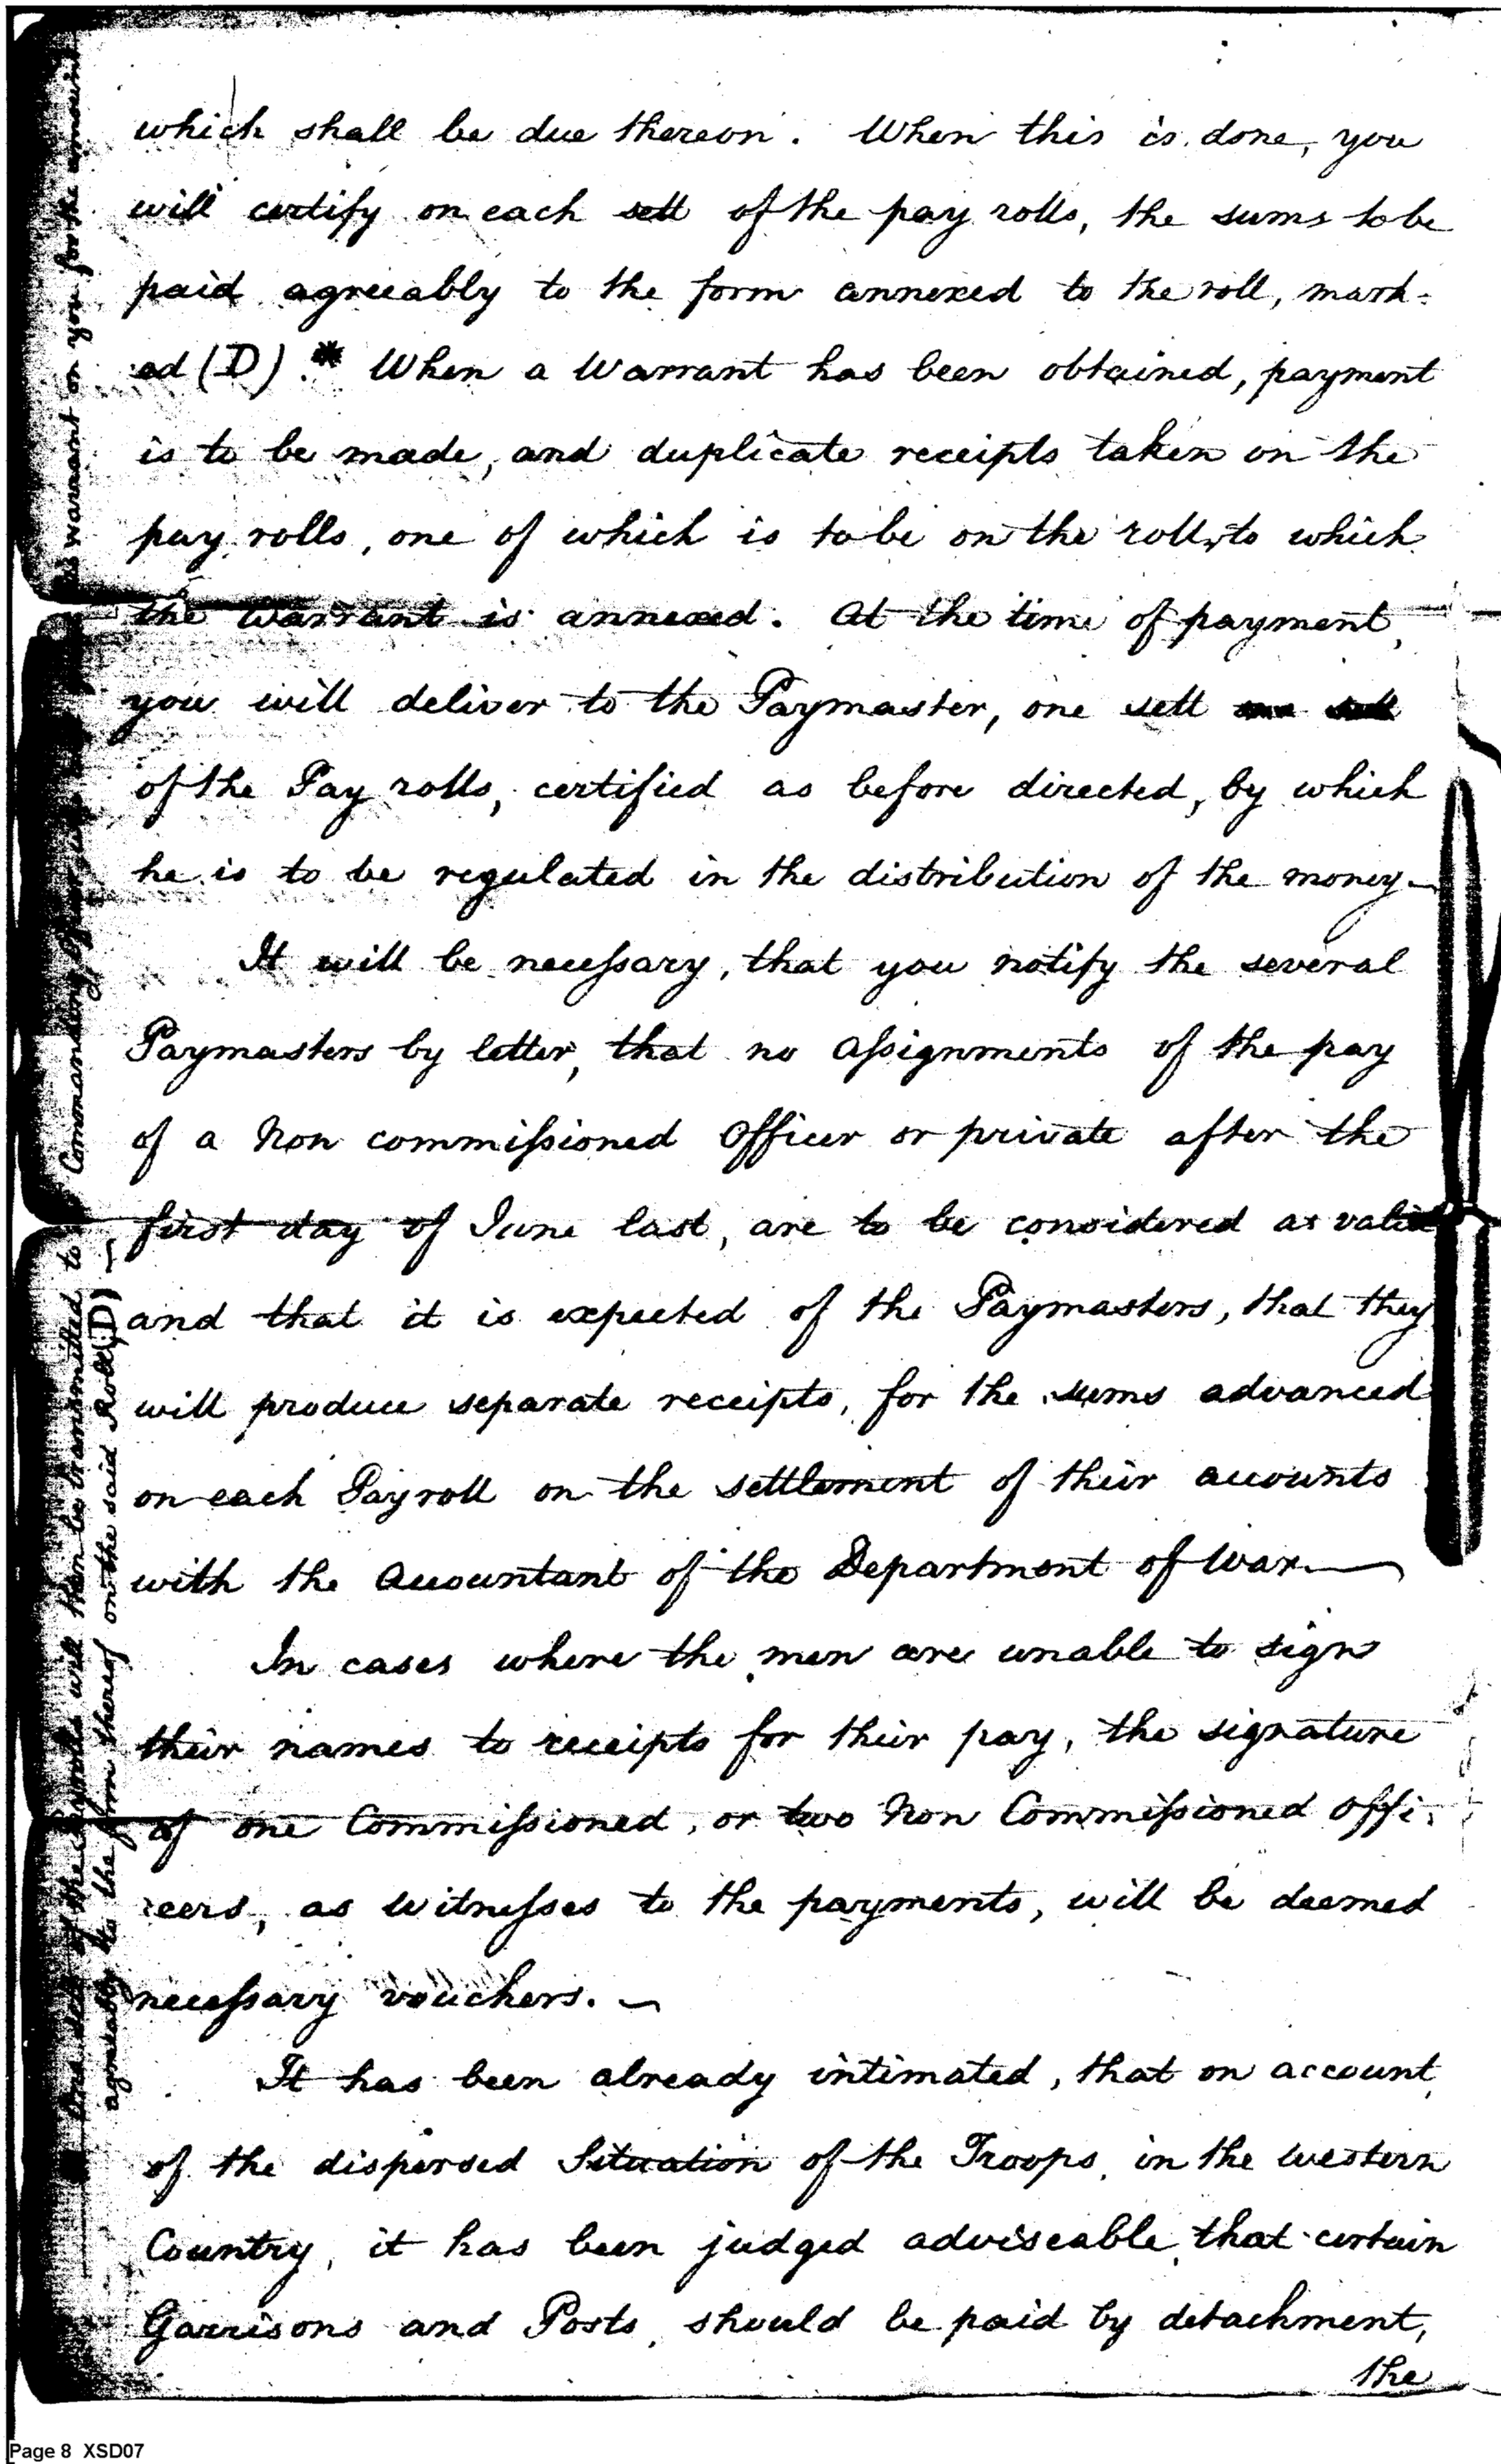 which shall be due thereon. When this is done, you
will certify on each sett of the pay rolls, the sums to be
paid agreeably to the form annexed to the roll, mark-
ed (D).* When a Warrant has been obtained, payment
is to be made, and duplicate receipts taken on the
pay rolls, one of which is to be on the roll, to which
the Warrant is annexed. At the time of payment,
you will deliver to the Paymaster, one sett
of the Pay rolls, certified as before directed, by which
he is to be regulated in the distribution of the money—
It will be necessary, that you notify the several
Paymasters by letter, that no assignments of the pay
of a Non commissioned Officer or private after the
first day of June last, are to be considered as valid
and that it is expected of the Paymasters, that they
will produce separate receipts, for the sums advanced
on each Payroll on the settlement of their accounts
with the Accountant of the Department of War—
In cases where the men are unable to sign
their names to receipts for their pay, the signature
of one Commissioned, or two Non Commissioned offi-
cers, as witnesses to the payments, will be deemed
necessary vouchers. —
It has been already intimated, that on account
of the dispersed Situation of the Troops, in the western
Country, it has been judged adviseable, that certain
Garrisons and Posts, should be paid by detachment,
the
One sett of the Payrolls will then be transmitted to Commanding warrant on you for the amount
agreeably to the form thereof on the said Roll (D) —
Page 8 XSD07